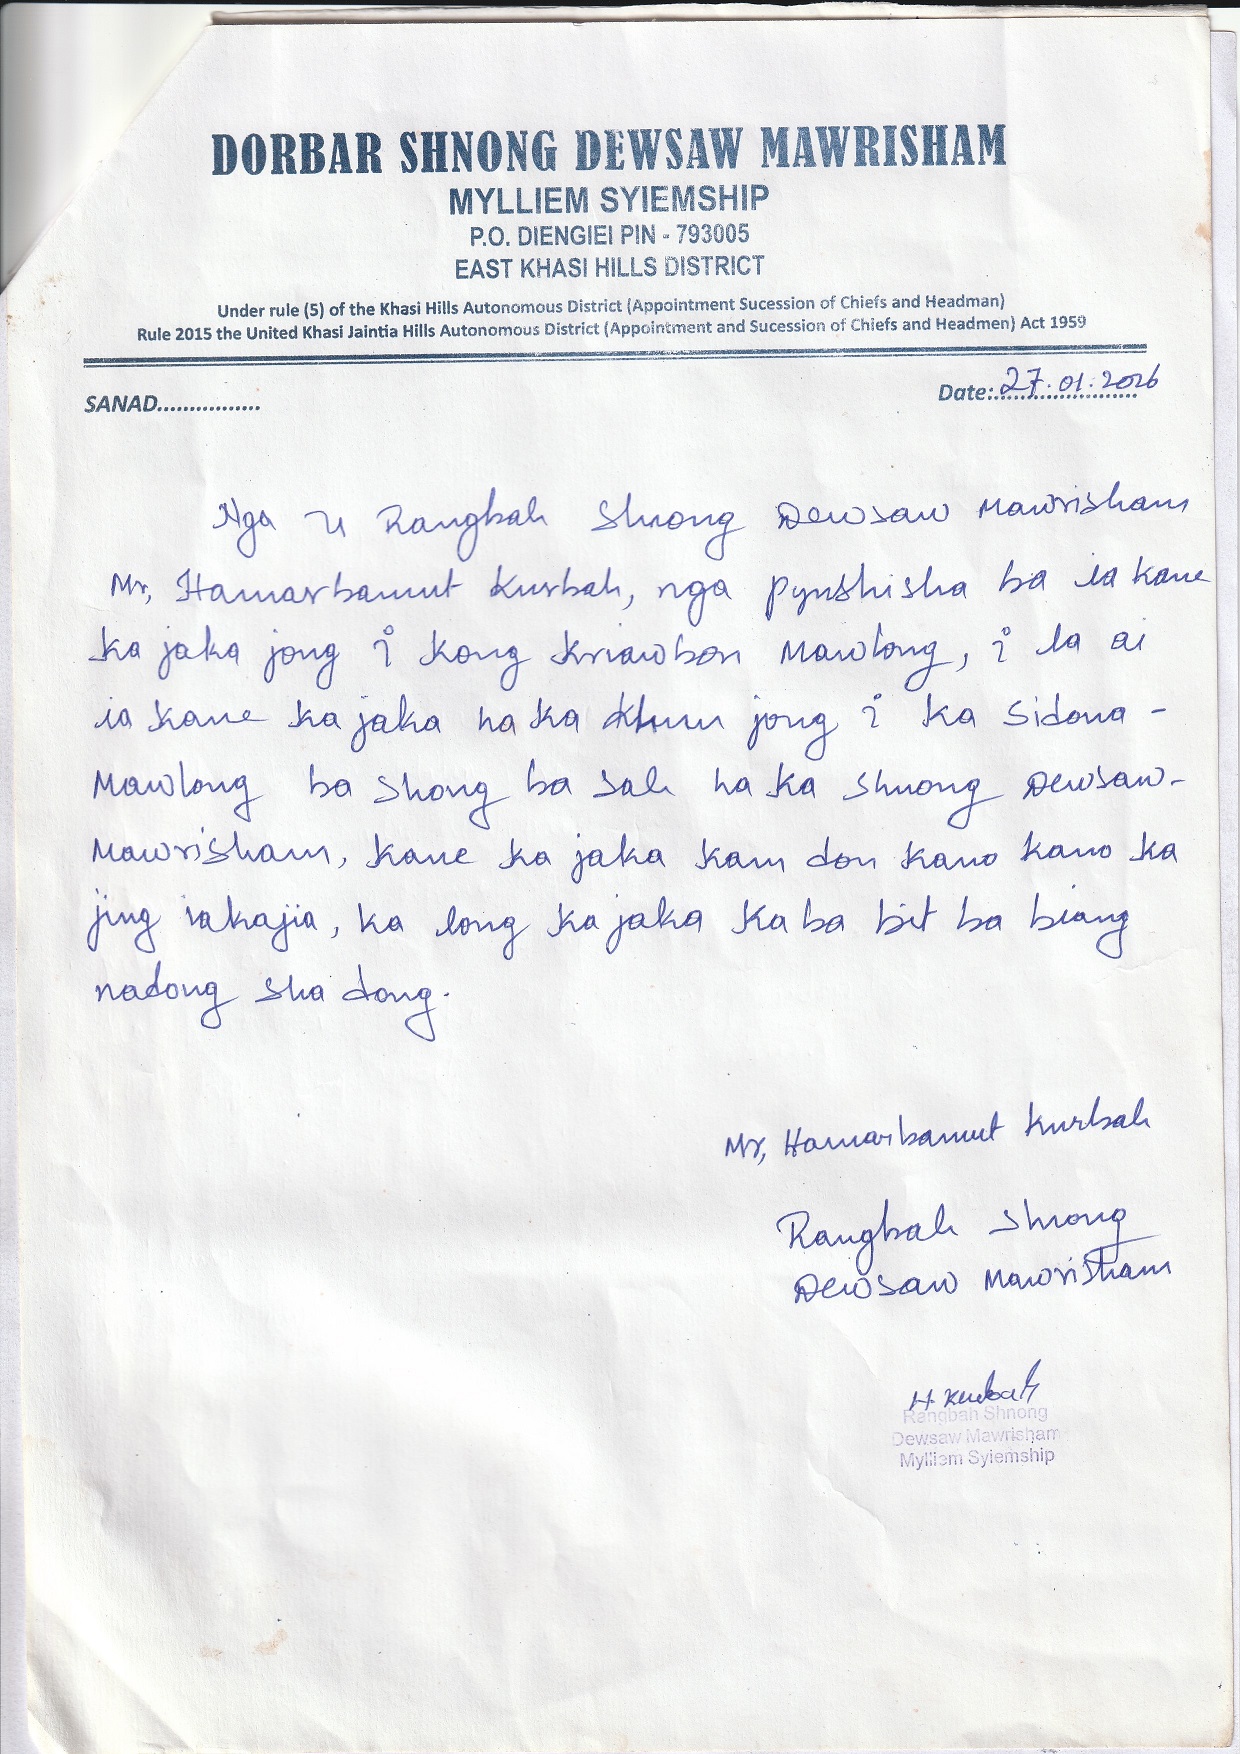 DORBAR SHNONG DEWSAW MAWRISHAM
MYLLIEM SYIEMSHIP
P.O. DIENGIEI PIN - 793005
EAST KHASI HILLS DISTRICT
Under rule (5) of the Khasi Hills Autonomous District (Appointment Sucession of Chiefs and Headman)
Rule 2015 the United Khasi Jaintia Hills Autonomous District (Appointment and Sucession of Chiefs and Headmen) Act 1959
SANAD................ Date:27.01.2026
Nga u Rangbah Shnong Dewsaw Mawrisham
Mr, Hamarbamut Kurbah, nga pynshisha ba ia kane
ka jaka jong i kong Kriawbon Mawlong, i la ai
ia kane ka jaka ha ka khun jong i ka Sidona-
Mawlong ba shong ba sah ha ka shnong Dewsaw-
Mawrisham, kane ka jaka kam don kano kano ka
jing iakajia, ka long ka jaka kaba bit ba biang
nadong sha dong.
Mr, Hamarbamut Kurbah
Rangbah Shnong
Dewsaw Mawrisham
H Kurbah
Rangbah Shnong
Dewsaw Mawrisham
Mylliem Syiemship